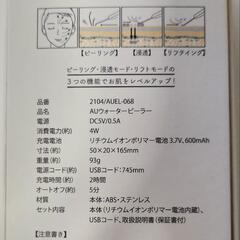 【ピーリング】 【浸透】 【リフティング】
ピーリング・浸透モード・リフトモードの
3つの機能でお肌をレベルアップ！
品番 2104/AUEL-068
品名 AUウォーターピーラー
電源 DC5V/0.5A
消費電力(約) 4W
充電電池 リチウムイオンポリマー電池 3.7V, 600mAh
寸法(約) 50×20×165mm
重量(約) 93g
コード長さ(約) USBコード：745mm
充電時間(約) 2時間
オートオフ(約) 5分
材質 本体：ABS・ステンレス
セット内容 本体(リチウムイオンポリマー電池内蔵)、
USBコード、取扱説明書（保証書付）
【注意書き】